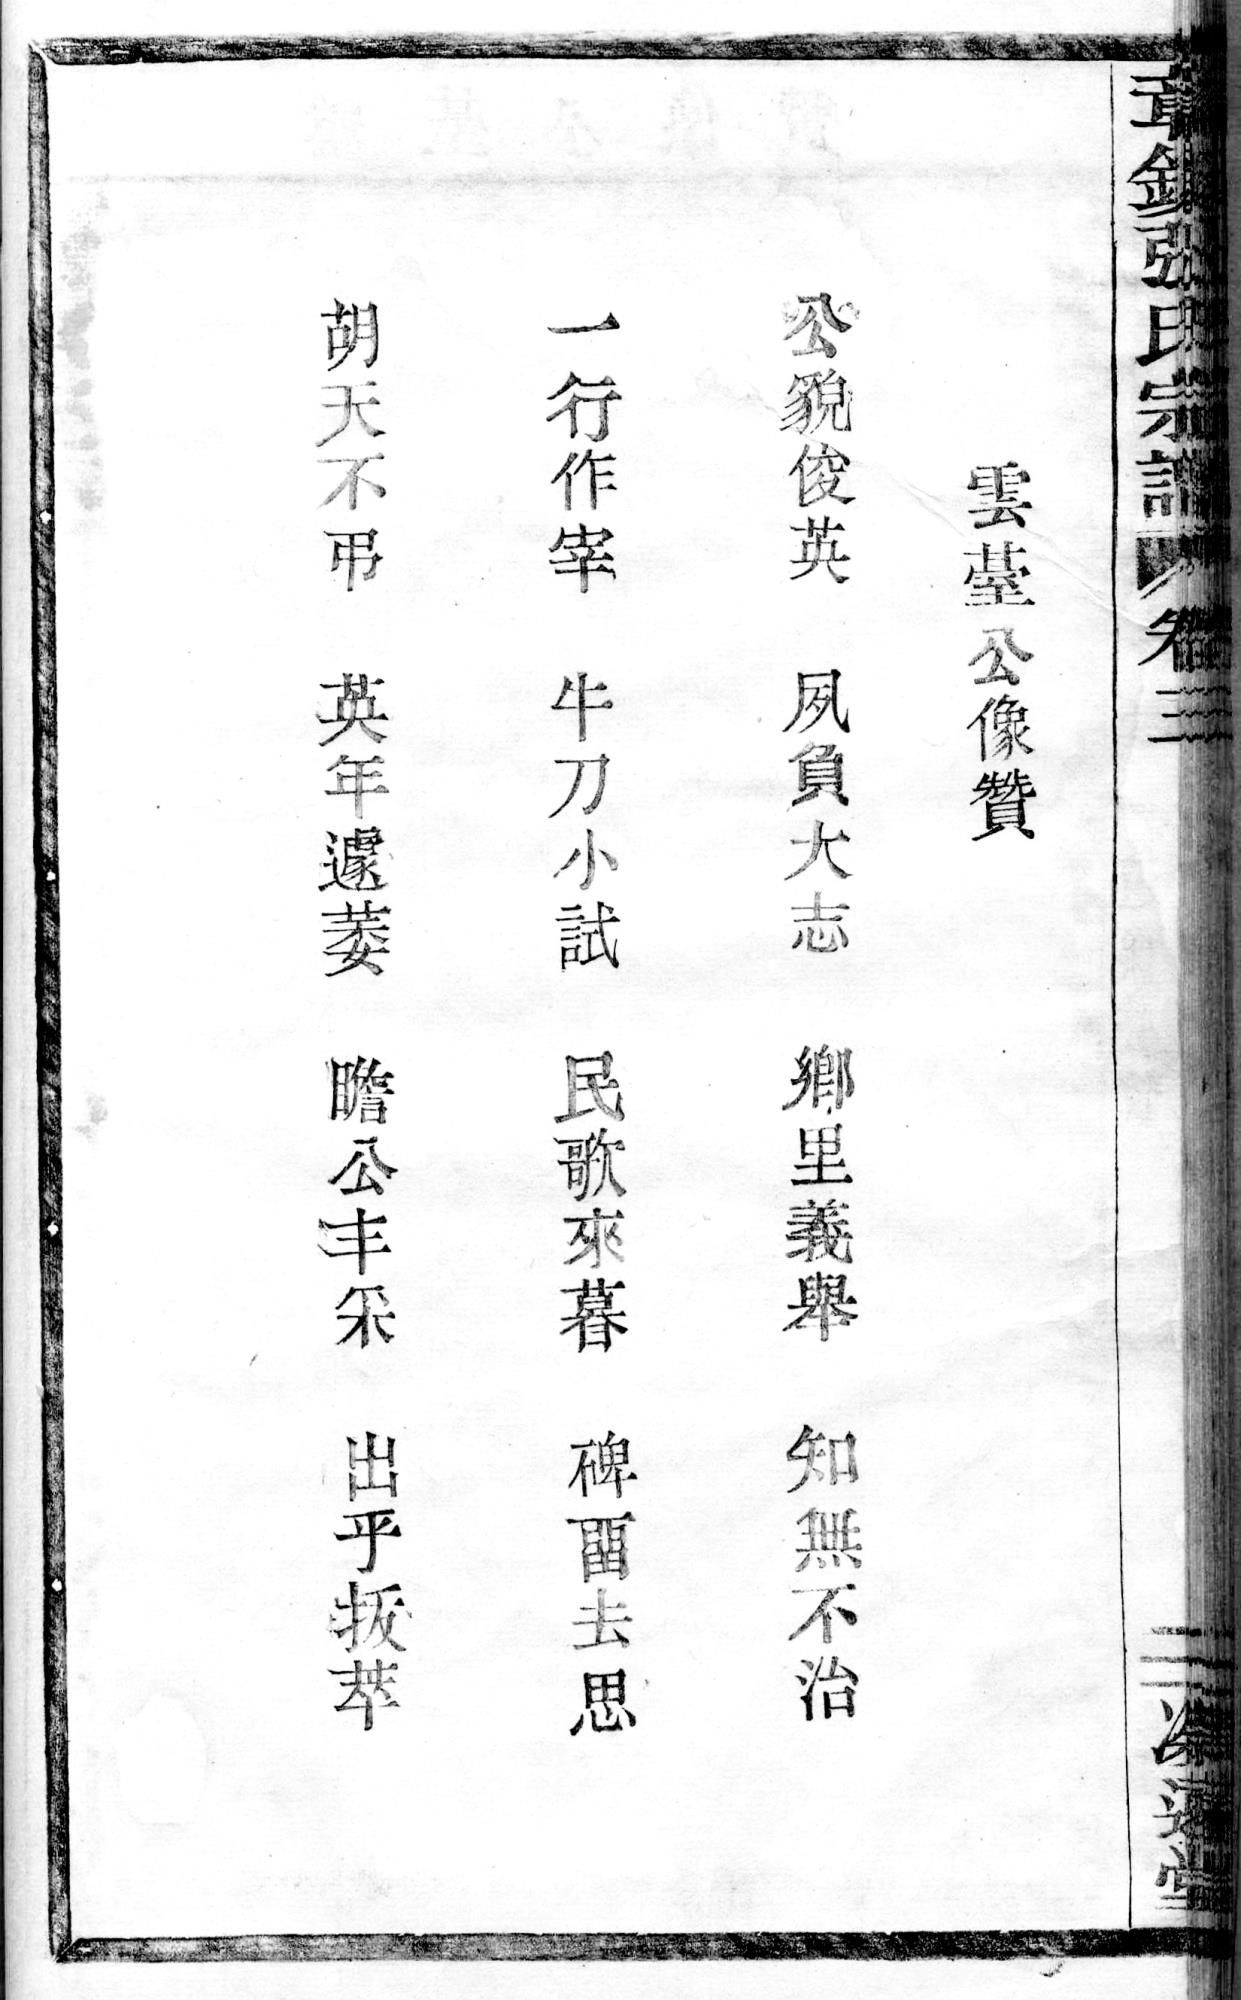 雲臺公像贊
公貌俊英　夙負大志　鄉里義舉　知無不治
一行作宰　牛刀小試　民歌來暮　碑畱去思
胡天不弔　英年遽萎　瞻公丰采　出乎拔萃
張氏宗譜　卷三
堂